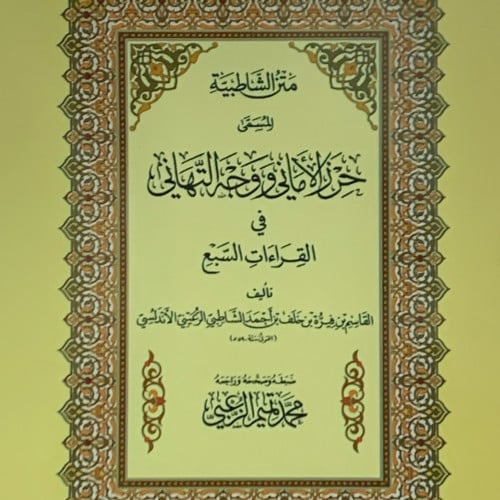 متن الشاطبية
المسمى
حرز الأماني ووجه التهاني
في
القراءات السبع
تأليف
القاسم بن فيرة بن خلف بن أحمد الشاطبي الرعيني الأندلسي
(المتوفى سنة ٥٩٠ هـ)
ضبطه وصححه وراجعه
محمد تميم الزعبي